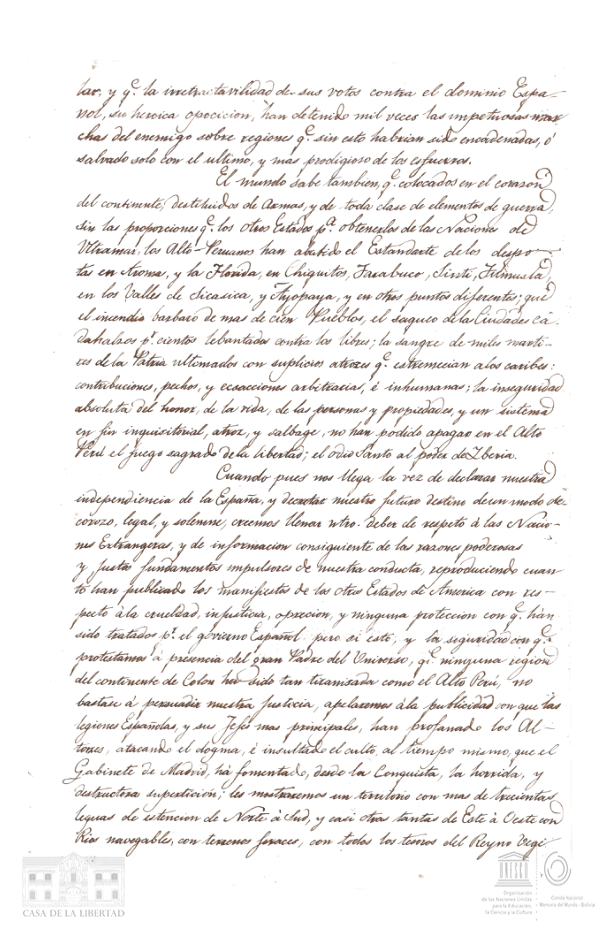 lar, y q.e la irretractavilidad de sus votos contra el dominio Espa-
ñol, su heroica oposicion, han detenido mil veces las impetuosas mar
chas del enemigo sobre regiones q.e sin esto habrian sido encadenadas, ó
salvado solo con el ultimo, y mas prodigioso de los esfuerzos.
El mundo sabe tambien, q.e colocados en el corazon
del continente; destituidos de Armas, y de toda clase de elementos de guerra,
sin las proporciones q.e los otros Estados p.a obtenerlos de las Naciones de
Ultramar, los Alto-Peruanos han abatido el Estandarte de los despo-
tas en Aroma, y la Florida, en Chiquitos, Tarabuco, Sinti,
en los Valles de Sicasica, y Ayopaya, y en otros puntos diferentes; que
el incendio barbaro de mas de cien Pueblos, el saqueo de las Ciudades Ca
dahalzos p.r cientos lebantados contra los libres; la sangre de miles marti-
res de la Patria ultimados con suplicios atrozes q.e estremecian a los caribes:
contribuciones, pechos, y ecsacciones arbitrarias, é inhumanas; la inseguridad
absoluta del honor, de la vida, de las personas y propiedades, y un sistema
en fin inquisitorial, atroz, y salbage, no han podido apagar en el Alto
Perú el fuego sagrado de la libertad; el odio Santo al poder de Iberia.
Cuando pues nos llega la vez de declarar nuestra
independiencia de la España, y decretar nuestro futuro destino de un modo de
corozo, legal, y solemne, creemos llenar ntro. deber de respeto à las Nacio-
nes Extrangeras, y de informacion consiguiente de las razones poderosas
y justos fundamentos impulsores de nuestra conducta, reproduciendo cuan
to han publicado los manifiestos de los otros Estados de America con res-
pecto à la crueldad, injusticia, opresion, y ninguna proteccion con q.e han
sido tratados p.r el govierno Español. pero si esto, y la seguridad con q.e
protestamos à presencia del gran Padre del Universo, q.e ninguna region
del continente de Colon ha sido tan tiranisada como el Alto Perú, no
bastase à persuadir nuestra justicia, apelaremos à la publicidad con que las
legiones Españolas, y sus Jefes mas principales, han profanado los Al-
tares, atacando el dogma, é insultado el culto, al tiempo mismo, que el
Gabinete de Madrid, há fomentado, desde la Conquista, la horrida, y
destructora supersticion; les mostraremos un territorio con mas de trecientas
leguas de estencion de Norte à Sud, y casi otras tantas de Este à Oeste con
Rios navegables, con terrenos feraces, con todos los tesoros del Reyno Vegé
CASA DE LA LIBERTAD
UNESCO
Organización
de las Naciones Unidas
para la Educación,
la Ciencia y la Cultura
Comité Nacional
Memoria del Mundo - Bolivia